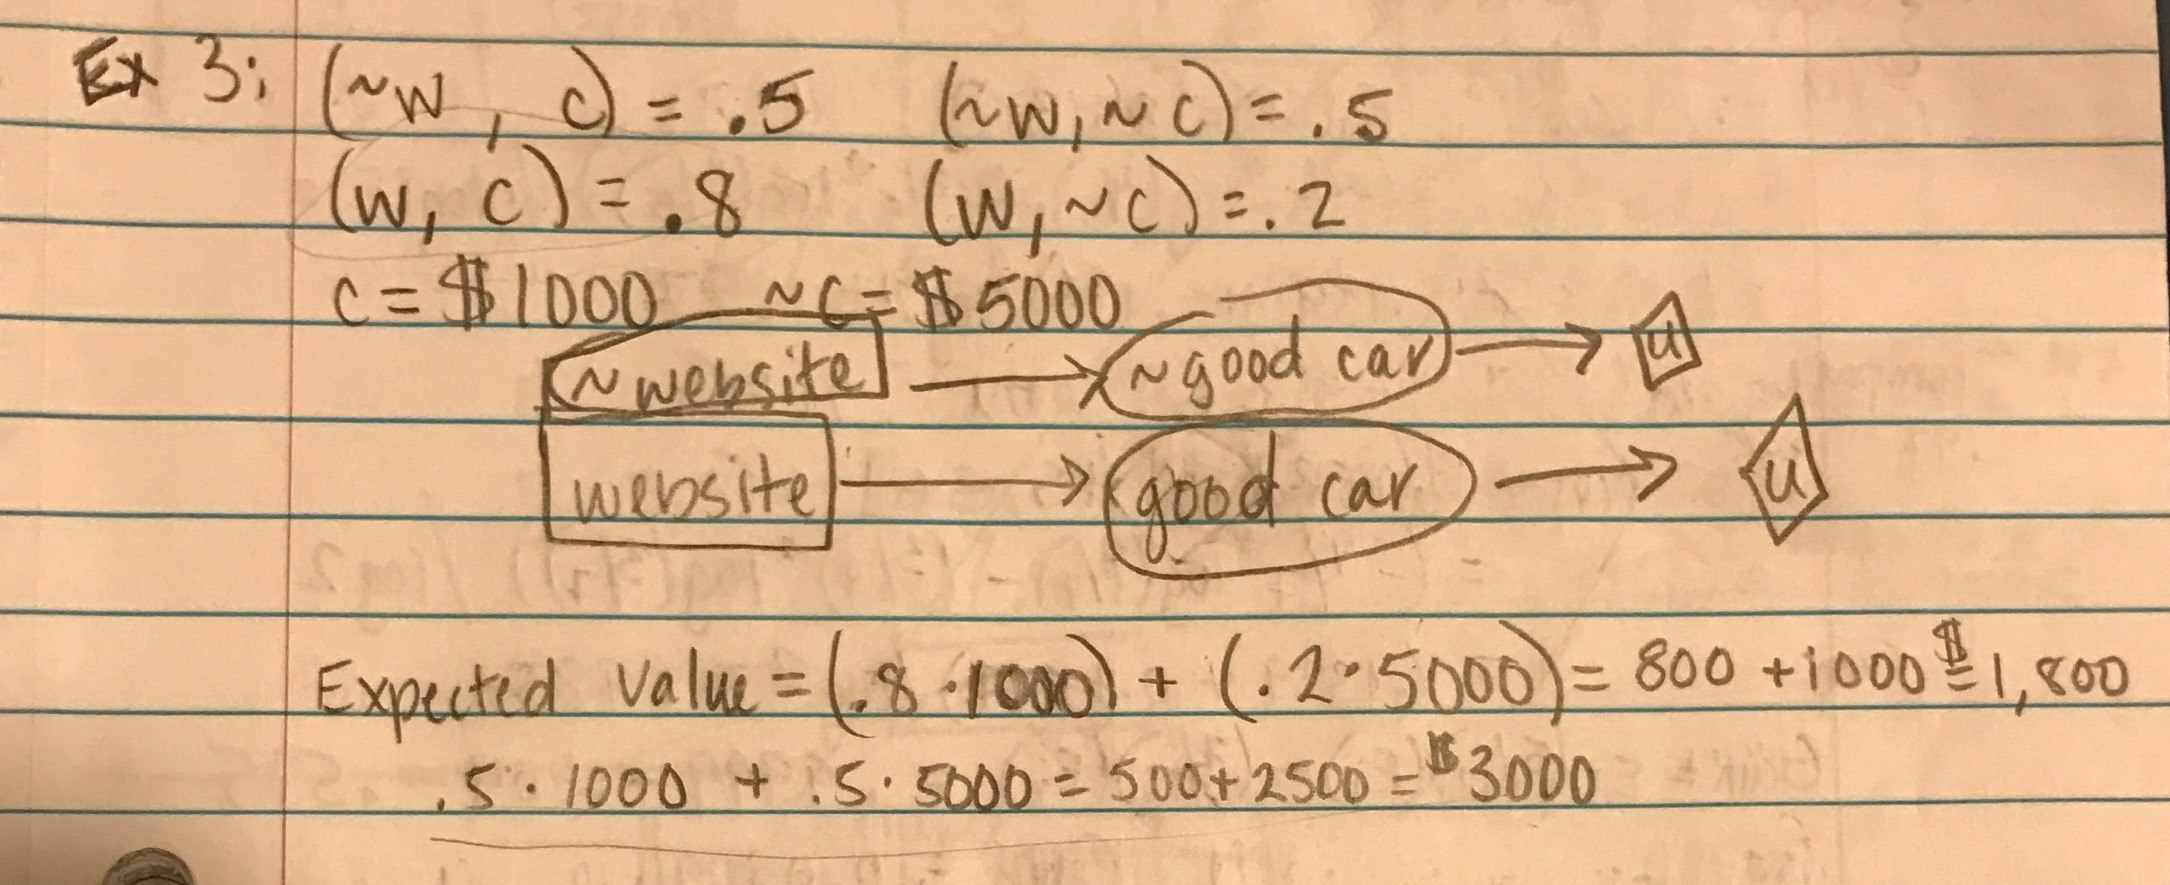 Ex 3: (~W, C) = .5 (~W, ~C) = .5
(W, C) = .8 (W, ~C) = .2
C = $1000 ~C = $5000
~website → ~good car → u
website → good car → u
Expected Value = (.8 · 1000) + (.2 · 5000) = 800 + 1000 = $1,800
.5 · 1000 + .5 · 5000 = 500 + 2500 = $3000